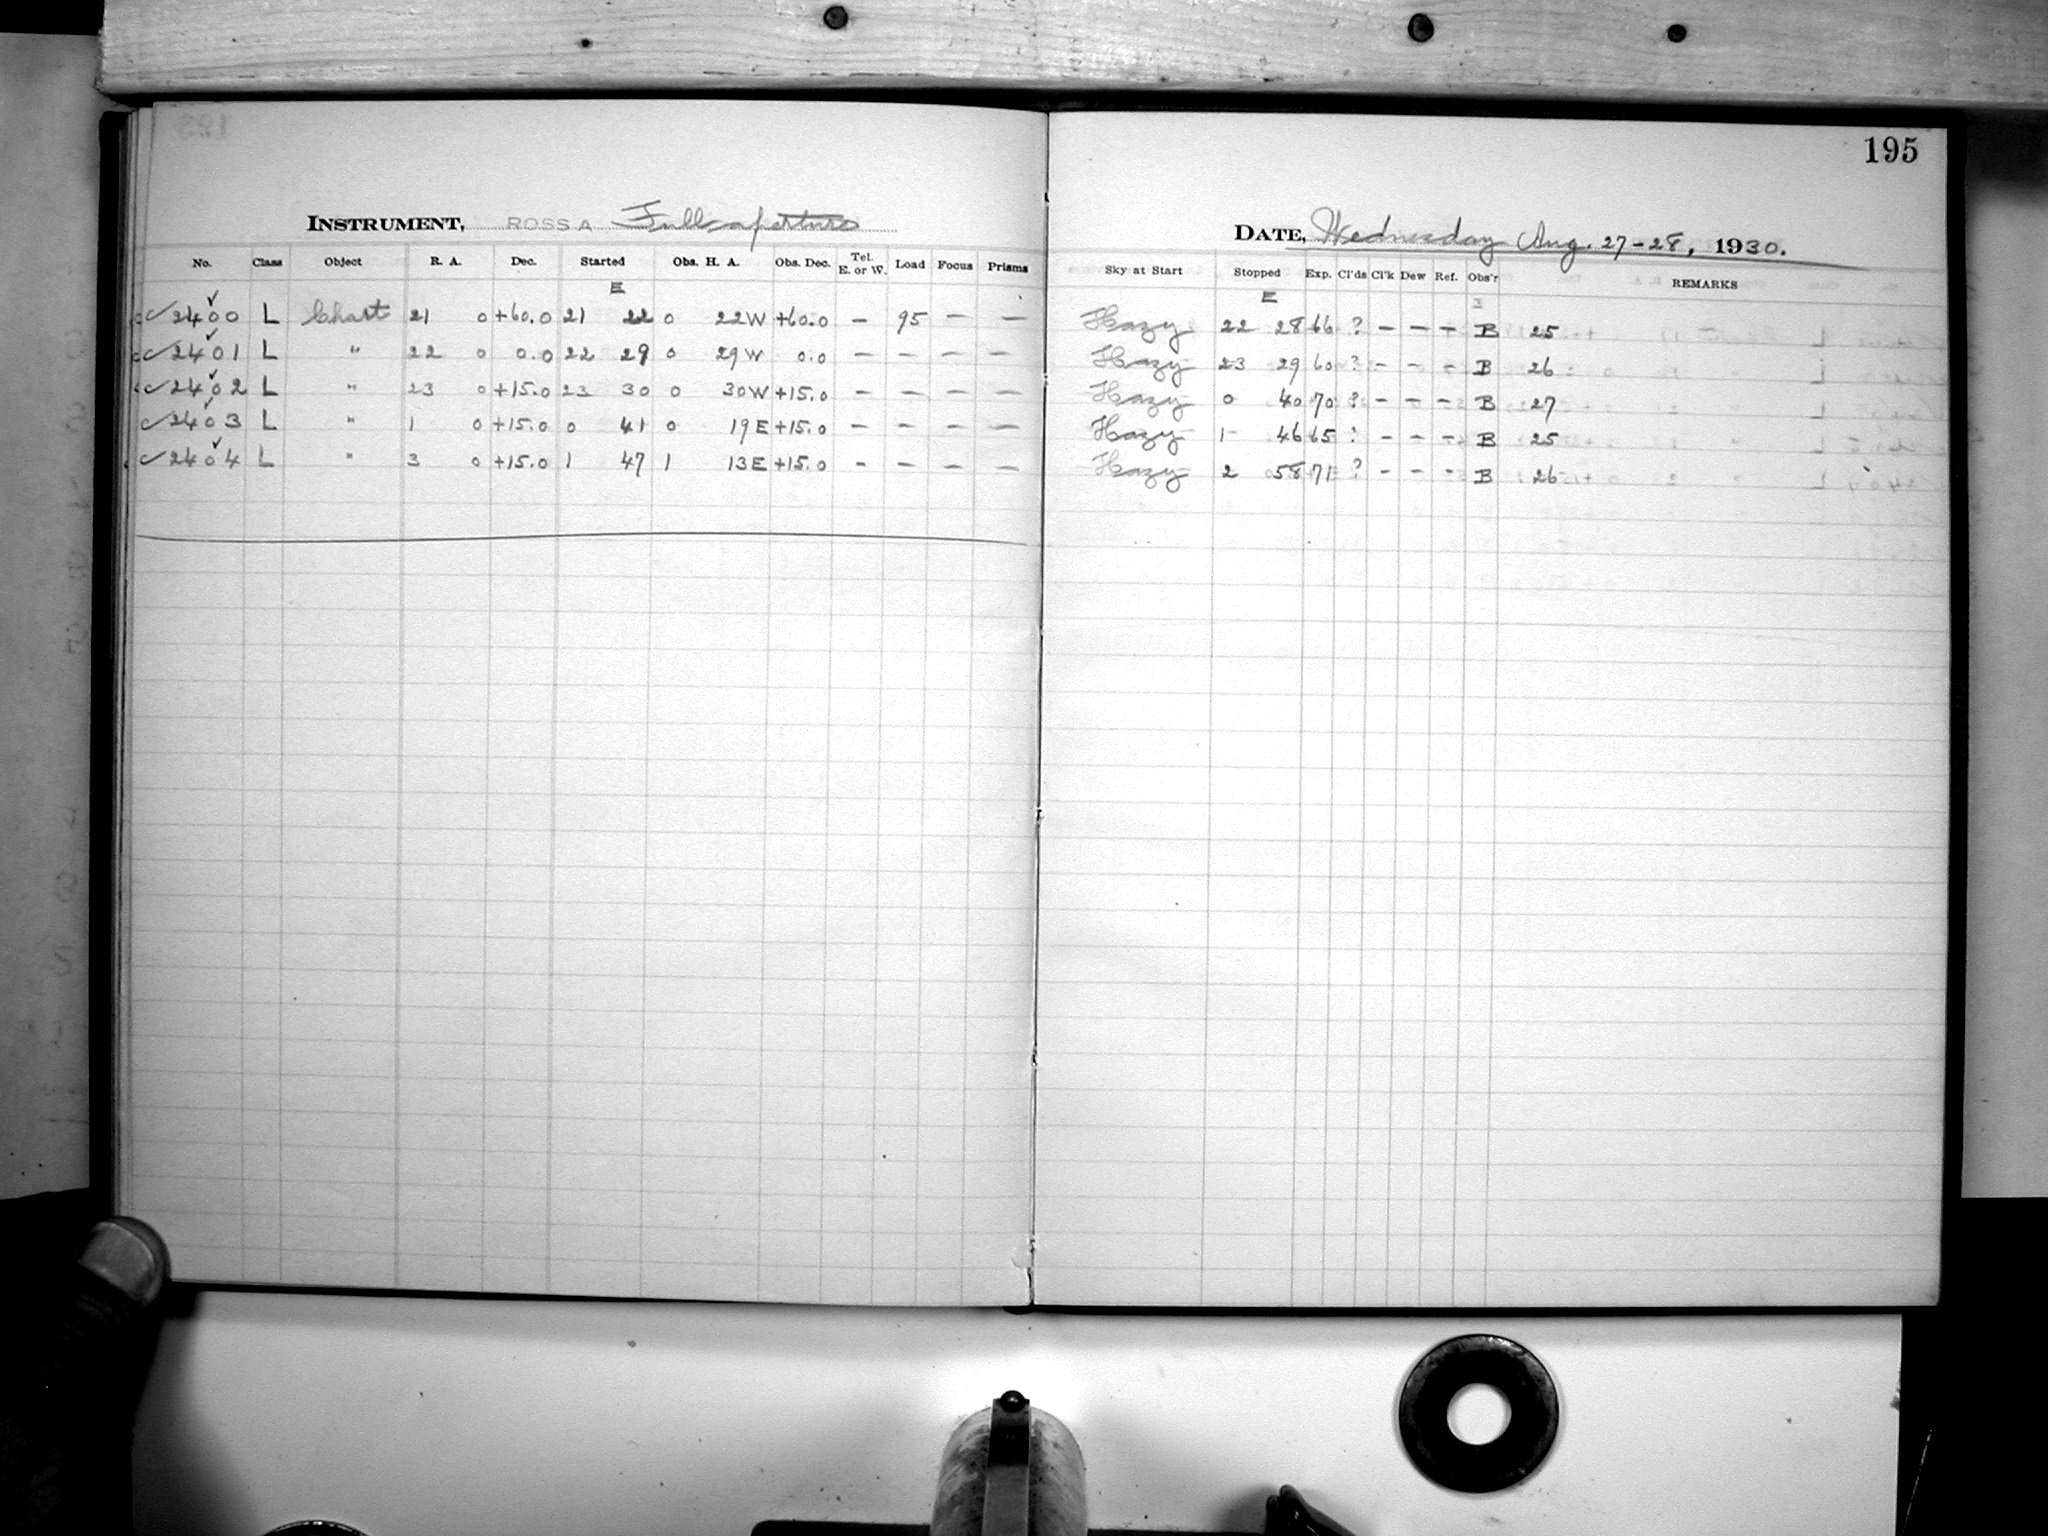 195
INSTRUMENT, ROSS A Full aperture
DATE, Wednesday Aug. 27-28, 1930.
No. Class Object R. A. Dec. Started Obs. H. A. Obs. Dec. Tel. E. or W. Load Focus Prisms Sky at Start Stopped Exp. Cl'ds Cl'k Dew Ref. Obs'r REMARKS
E E
2400 L Chart 21 0 +60.0 21 22 0 22W +60.0 — 95 — — Hazy 22 28 66 ? — — — B 25
2401 L " 22 0 0.0 22 29 0 29W 0.0 — — — — Hazy 23 29 60 ? — — — B 26
2402 L " 23 0 +15.0 23 30 0 30W +15.0 — — — — Hazy 0 40 70 ? — — — B 27
2403 L " 1 0 +15.0 0 41 0 19E +15.0 — — — — Hazy 1 46 65 ? — — — B 25
2404 L " 3 0 +15.0 1 47 1 13E +15.0 — — — — Hazy 2 58 71 ? — — — B 26